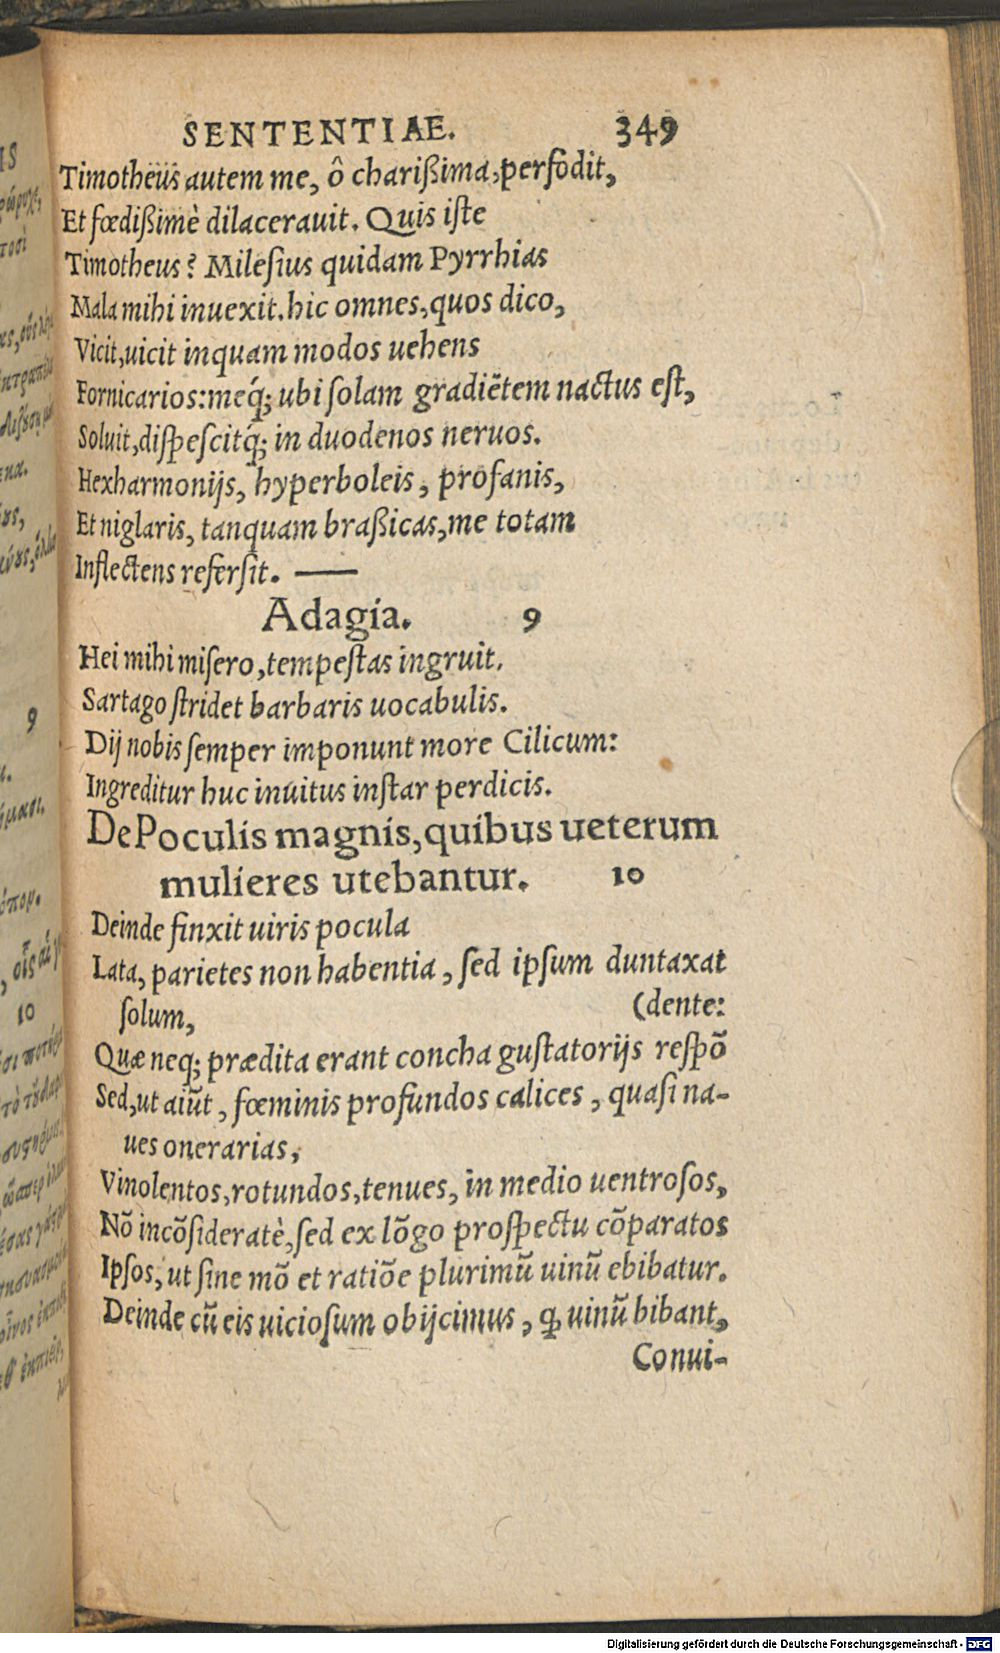 SENTENTIAE. 349
Timotheüs autem me, ô charißima, perfodit,
Et fœdißimè dilacerauit. Quis iſte
Timotheus? Mileſius quidam Pyrrhias
Mala mihi inuexit. hic omnes, quos dico,
Vicit, uicit inquam modos uehens
Fornicarios: meq́; ubi ſolam gradiẽtem nactus eſt,
Soluit, diſpeſcitq́; in duodenos neruos.
Hexharmonijs, hyperboleis, profanis,
Et niglaris, tanquam braßicas, me totam
Inflectens referſit. ——
Adagia. 9
Hei mihi miſero, tempeſtas ingruit.
Sartago ſtridet barbaris uocabulis.
Dij nobis ſemper imponunt more Cilicum:
Ingreditur huc inuitus inſtar perdicis.
De Poculis magnis, quibus ueterum
mulieres utebantur. 10
Deinde finxit uiris pocula
Lata, parietes non habentia, ſed ipſum duntaxat
ſolum, (dente:
Quæ neq; prædita erant concha guſtatorijs reſpõ
Sed, ut aiũt, fœminis profundos calices, quaſi na-
ues onerarias,
Vinolentos, rotundos, tenues, in medio uentroſos,
Nõ incõſideratè, ſed ex lõgo proſpectu cõparatos
Ipſos, ut ſine mõ et ratiõe plurimũ uinũ ebibatur.
Deinde cũ eis uicioſum obijcimus, ꝙ uinũ bibant,
Conui-
Digitalisierung gefördert durch die Deutsche Forschungsgemeinschaft - DFG